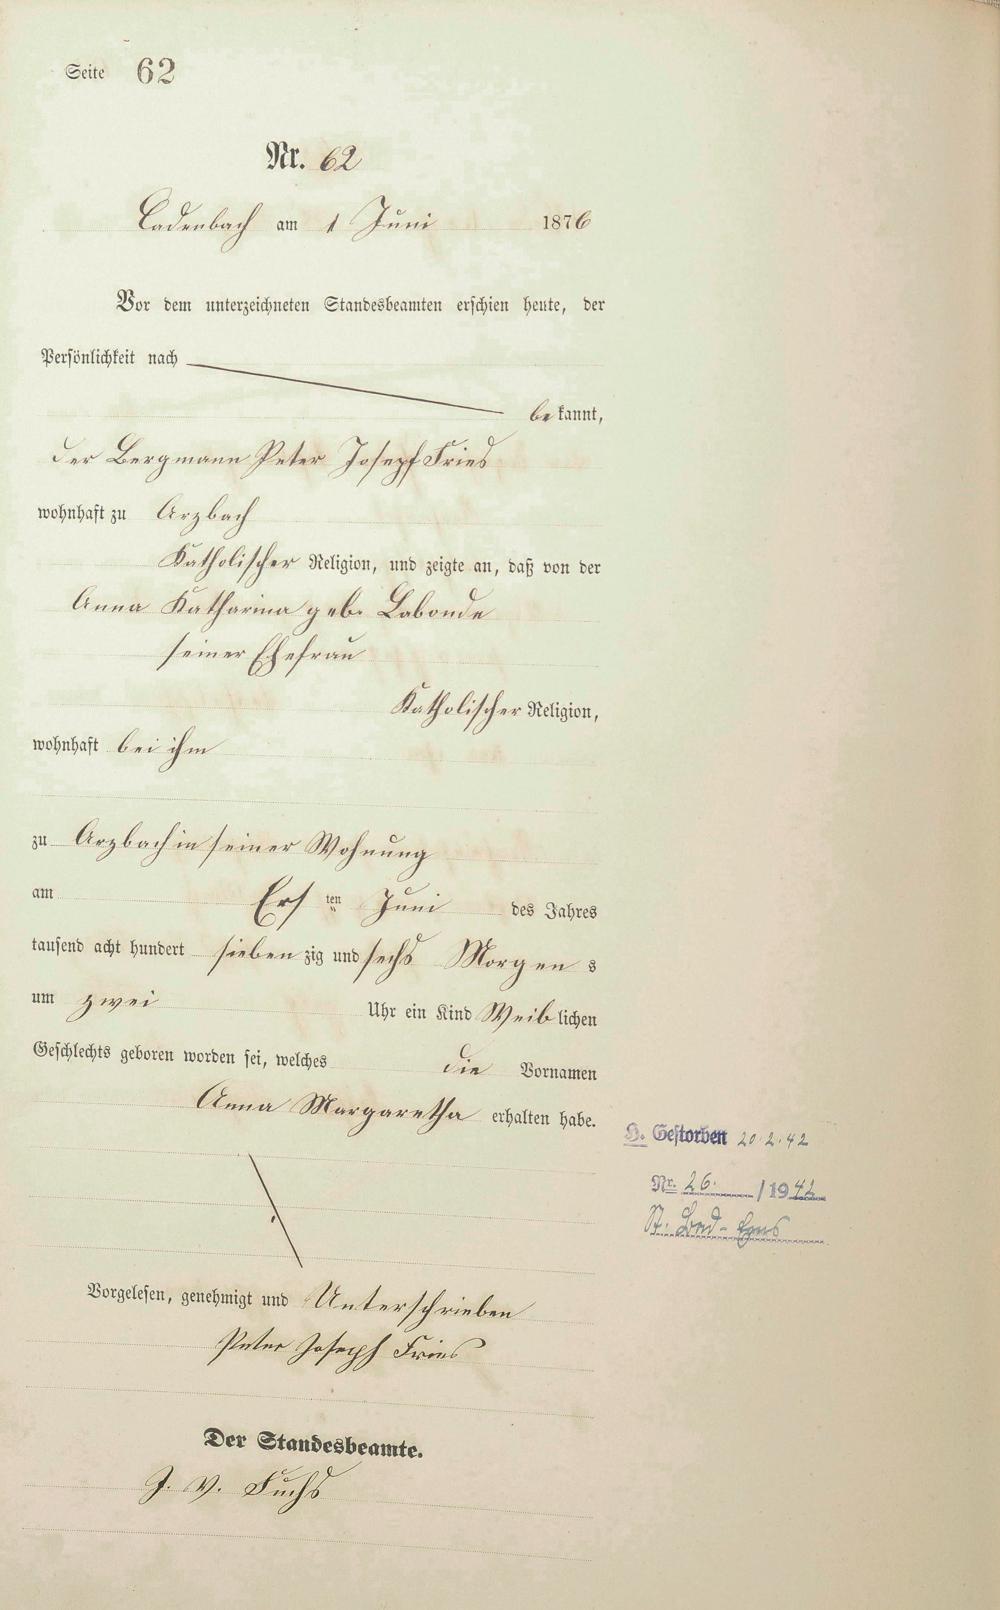 Seite 62
Nr. 62
Cadenbach am 1 Juni 1876
Vor dem unterzeichneten Standesbeamten erschien heute, der
Persönlichkeit nach
bekannt,
der Bergmann Peter Josepf Fries
wohnhaft zu Arzbach
Katholischer Religion, und zeigte an, daß von der
Anna Katharina geb. Labonde
seiner Ehefrau
Katholischer Religion,
wohnhaft bei ihm
zu Arzbach in seiner Wohnung
am Ersten Juni des Jahres
tausend acht hundert siebenzig und sechs Morgens
um zwei Uhr ein Kind Weiblichen
Geschlechts geboren worden sei, welches die Vornamen
Anna Margaretha erhalten habe.
Gestorben 20.2.42
Nr. 26. /1942
St. Bad-Ems
Vorgelesen, genehmigt und Unterschrieben
Peter Joseph Fries
Der Standesbeamte.
J. V. Fuchs